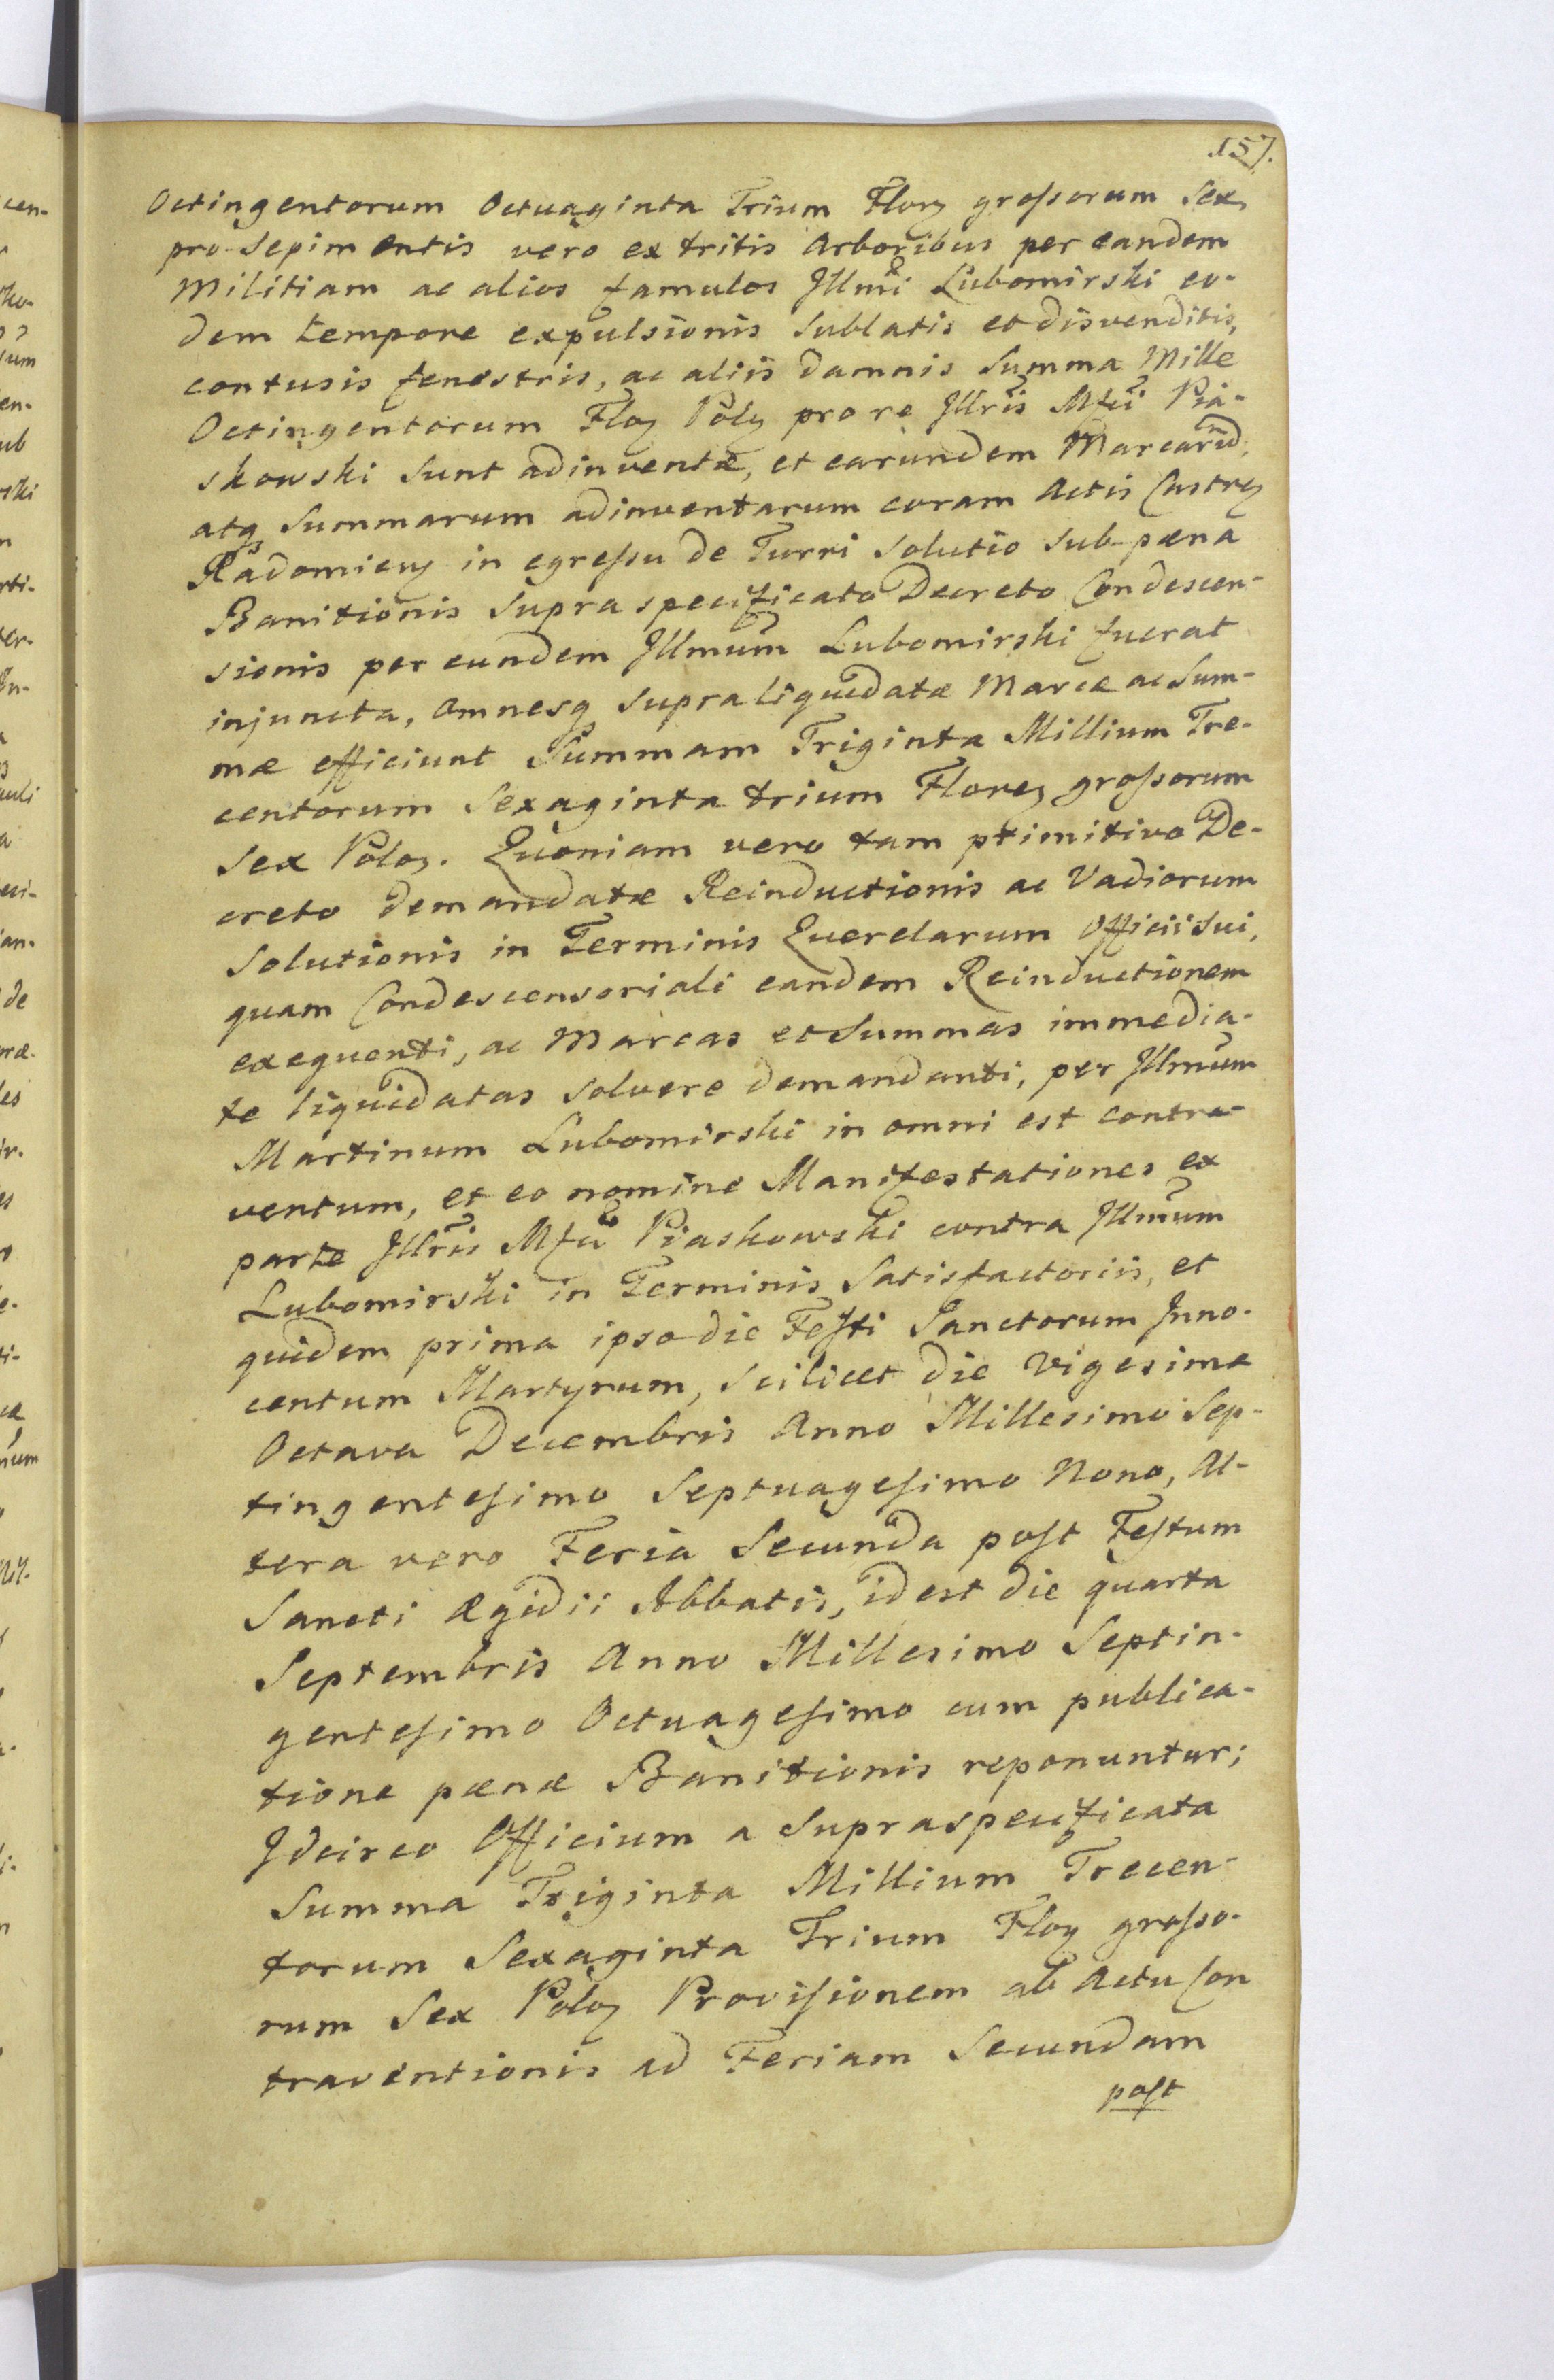 157.
Octingentorum Octuaginta Trium Florz grossorum Sex,
pro Sepimentis vero ex tritis Arboribus per eandem
Militiam ac alios famulos Jllmi Lubomirski eo-
dem tempore expulsionis sublatis et disvenditis,
contusis fenestris, ac aliis damnis Summa Mille
Octingentorum Floz Polz pro re Jllris Mfci Pia-
skowski sunt adinventæ, et earundem Marcarum,
atq Summarum adinventarum coram Actis Castrz
Radomiens in egressu de Turri solutio sub pæna
Banitionis supra specificato Decreto Condescen-
sionis per eundem Jllmum Lubomirski fuerat
injuncta, omnesq supraliquidatæ Marcæ ac Sum-
mæ efficiunt Summam Triginta Millium Tre-
centorum Sexaginta trium Florez grossorum
Sex Poloz. Quoniam vero tam primitivo De-
creto demandatæ Reinductionis ac Vadiorum
Solutionis in Terminis Querelarum Officii sui,
quam Condescensoriali eandem Reinductionem
exequenti, ac Marcas et Summas immedia-
te liquidatas solvere demandanti, per Jllmum
Martinum Lubomirski in omni est contra-
ventum, et eo nomine Manifestationes ex
parte Jllris Mfci Piaskowski contra Jllmum
Lubomirski in Terminis Satisfactoriis, et
quidem prima ipso die Festi Sanctorum Jnno-
centum Martyrum, scilicet die Vigesima
Octava Decembris Anno Millesimo Sep-
tingentesimo Septuagesimo Nono, Al-
tera vero Feria Secunda post Festum
Sancti Ægidii Abbatis, id est die quarta
Septembris Anno Millesimo Septin-
gentesimo Octuagesimo cum publica-
tione pænæ Banitionis reponuntur;
Jdcirco Officium a supraspecificata
Summa Triginta Millium Trecen-
torum Sexaginta Trium Floz grosso-
rum Sex Poloz Provisionem ab Actu Con
traventionis ad Feriam Secundam
post